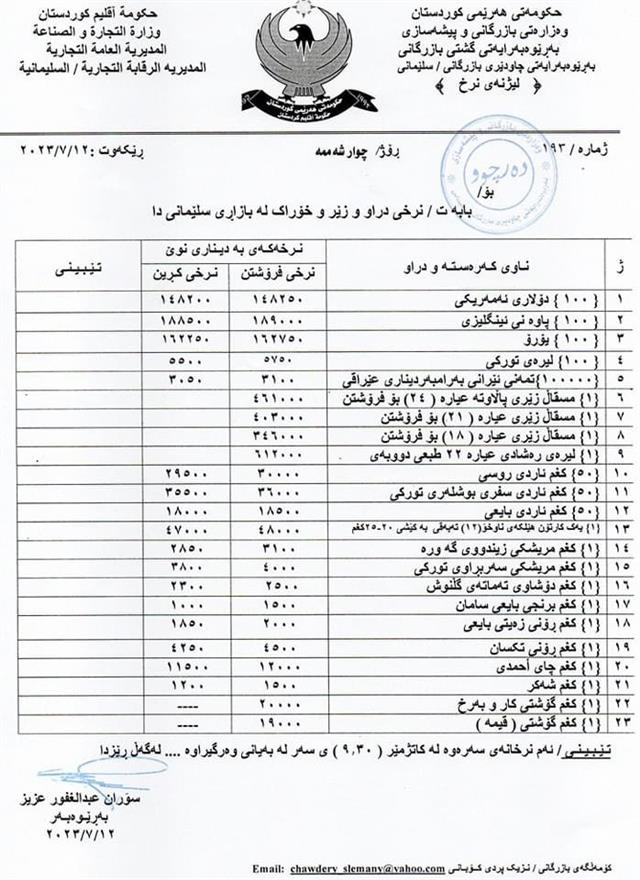 حكومەتی هەرێمی كوردستان
وەزارەتی بازرگانی و پیشەسازی
بەڕێوەبەرایەتی گشتی بازرگانی
بەڕێوەبەرایەتی چاودێری بازرگانی / سلێمانی
﴿ لیژنەی نرخ ﴾
حكومة أقليم كوردستان
وزارة التجارة و الصناعة
المديرية العامة التجارية
المديريه الرقابة التجارية / السليمانية
حكومەتی هەرێمی كوردستان
حكومة أقليم كردستان
ژمارە / ١٩٣
ڕۆژ/ چوارشەممە
ڕێكەوت : ٢٠٢٣/٧/١٢
دەرچوو
بۆ/
بابەت / نرخی دراو و زێر و خۆراك لە بازاڕی سلێمانی دا
ژ ناوی كەرەستە و دراو نرخەكەی بە دیناری نوێ تێبینی
نرخی فرۆشتن نرخی كڕین
١ {١٠٠} دۆلاری ئەمەریكی ١٤٨٢٥٠ ١٤٨٢٠٠
٢ {١٠٠} پاوەنی ئینگلیزی ١٨٩٠٠٠ ١٨٨٥٠٠
٣ {١٠٠} یۆرۆ ١٦٢٧٥٠ ١٦٢٢٥٠
٤ {١٠٠} لیرەی توركی ٥٧٥٠ ٥٥٠٠
٥ {١٠٠٠٠٠}تمەنی ئێرانی بەرامبەردیناری عێراقی ٣١٠٠ ٣٠٥٠
٦ {١} مسقاڵ زێڕی پاڵاوتە عیارە ( ٢٤ ) بۆ فرۆشتن ٤٦١٠٠٠
٧ {١} مسقاڵ زێڕی عیارە ( ٢١ ) بۆ فرۆشتن ٤٠٣٠٠٠
٨ {١} مسقاڵ زێڕی عیارە ( ١٨ ) بۆ فرۆشتن ٣٤٦٠٠٠
٩ {١} لیرەی ڕەشادی عیارە ٢٢ طبعی دووبەی ٦١٢٠٠٠
١٠ {٥٠} كغم ئاردی روسی ٣٠٠٠٠ ٢٩٥٠٠
١١ {٥٠} كغم ئاردی سفری بوشلەری توركی ٣٦٠٠٠ ٣٥٥٠٠
١٢ {٥٠} كغم ئاردی بایعی ١٨٥٠٠ ١٨٠٠٠
١٣ {١} یەك كارتۆن هێلكەی ناوخۆ(١٢) تەبەقی بە كێشی ٢٠-٢٥كغم ٤٨٠٠٠ ٤٧٠٠٠
١٤ {١} كغم مریشكی زیندووی گەورە ٣١٠٠ ٢٨٥٠
١٥ {١} كغم مریشكی سەربڕاوی توركی ٤٠٠٠ ٣٨٠٠
١٦ {١} كغم دۆشاوی تەماتەی گڵنوش ٢٥٠٠ ٢٣٠٠
١٧ {١} كغم برنجی بایعی سامان ١٥٠٠ ١٠٠٠
١٨ {١} كغم ڕۆنی زەیتی بایعی ٢٠٠٠ ١٨٥٠
١٩ {١} كغم ڕۆنی تكسان ٤٥٠٠ ٤٢٥٠
٢٠ {١} كغم چای أحمدی ١٢٠٠٠ ١١٥٠٠
٢١ {١} كغم شەكر ١٥٠٠ ١٢٠٠
٢٢ {١} كغم گۆشتی كار و بەرخ ٢٠٠٠٠ ----
٢٣ {١} كغم گۆشتی ( قیمە ) ١٩٠٠٠ ----
تێبینی / ئەم نرخانەی سەرەوە لە كاتژمێر ( ٩,٣٠ ) ی سەر لە بەیانی وەرگیراوە .... لەگەڵ ڕێزدا
سۆران عبدالغفور عزیز
بەڕێوەبەر
٢٠٢٣/٧/١٢
كۆمەڵگەی بازرگانی / نزیك پردی كۆبانی Email: chawdery_slemany@yahoo.com